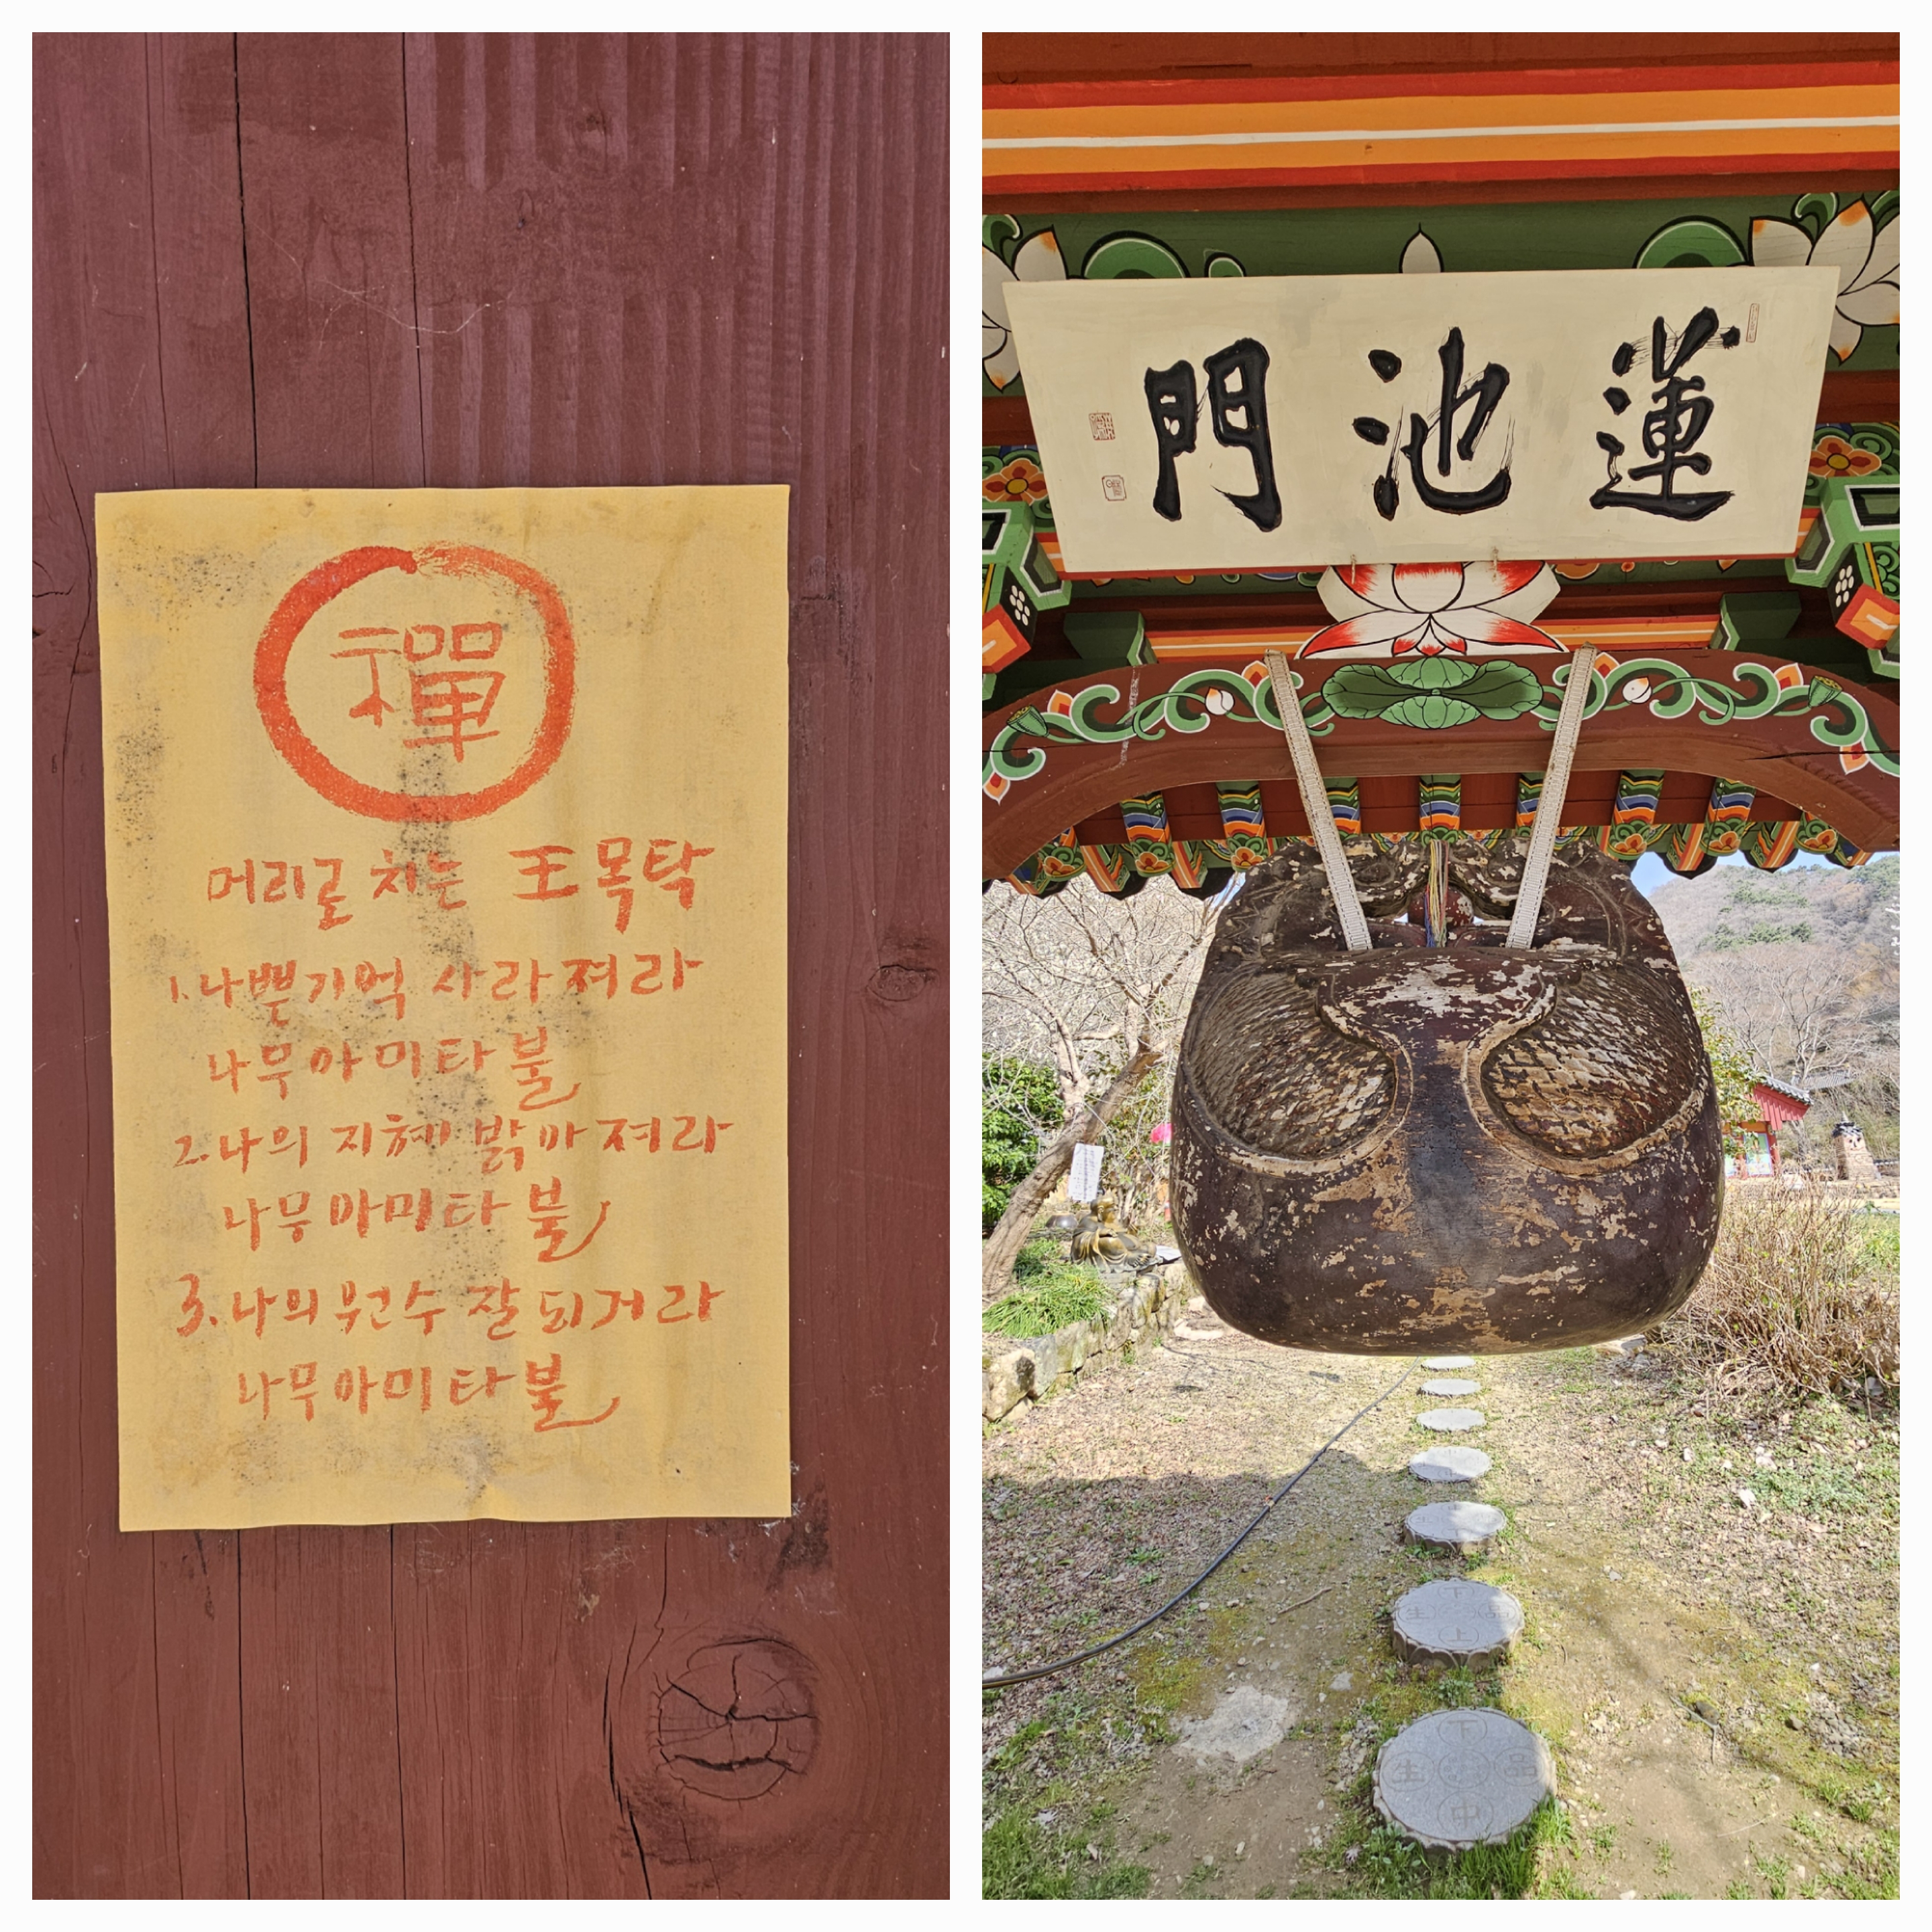 禪
머리로 치는 王목탁
1. 나쁜기억 사라져라
나무아미타불
2. 나의 지혜 밝아져라
나무아미타불
3. 나의 원수 잘되거라
나무아미타불
門池蓮
下
生 品
上
下
生 品
中